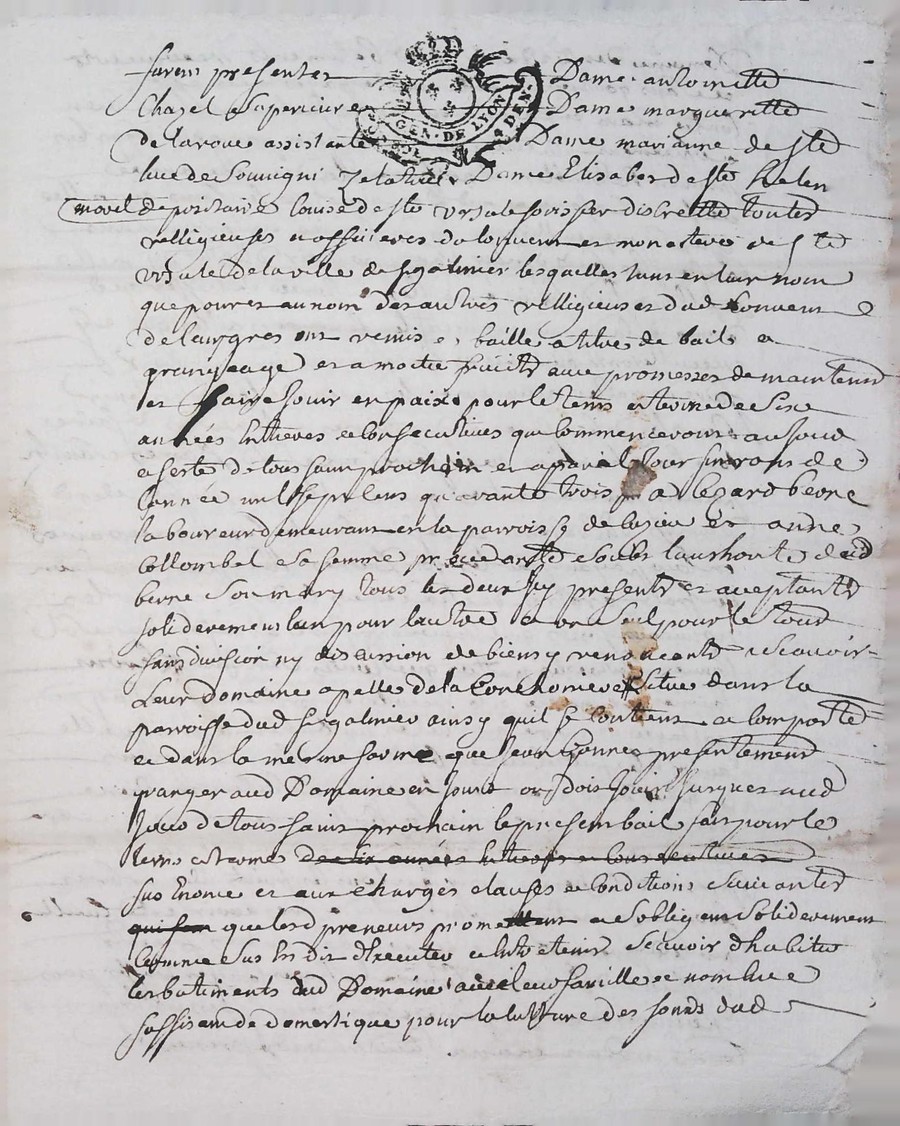 furent presentes Dame antoinette
Chazel superieure Dame margueritte
GEN · DE LYON · 4 DEN ·
delaroue assistante Dame marianne de ste
luce de Souvigni Zelatrice Dame Elisabet de ste helen
depositaire louise de ste ursule discrette toutes
relligieuses du couvent et monastere de ste
ursule de la ville de st galmier lesquelles tant en leur nom
que pour et au nom des autres relligieuses dud Couvent
de leur gres ont remis et baillé a titre de bail a
grangeage et a moitie fruits avec promesses de maintenir
et faire jouir en paix pour le tems et terme de Six
années entieres et consecutives qui Commenceront au jour
et feste de tous saints prochain et a pareil jour finiront de
l'année mil sept cens quarante trois a berne
laboureur demeurant en la paroisse de et anne
Collombet sa femme procedante soubs lauthorité dud
berne Son mary tous les deux icy presents et aceptants
soliderement lun pour lautre et un Seul pour le tout
sans division ny discussion de biens y renonceants Scavoir
Leur domaine apellé de la situé dans la
paroisse dud st galmier ainsy quil se Contient et comporte
et dans la mesme forme que jean presentement
granger aud Domaine en jouit ou doit jouir jusques aud
jour de tous saints prochain le present bail fait pour le
tems et terme de six années entieres et consecutives
sus Enoncé et aux charges clauses et Conditions suivantes
que lesd preneurs promettent et sobligent Soliderement
Comme Sus est dit d'Executer et entretenir Scavoir dhabiter
les batiments dud Domaine avec leur famille et nombre
suffisant de domestique pour la culture des fonds dud